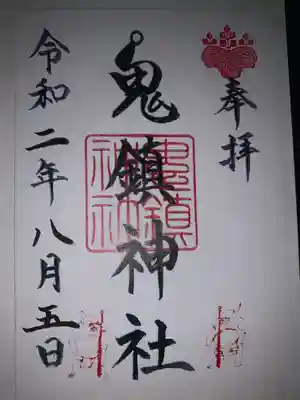 奉拝
鬼鎮神社
鬼鎮神社
令和二年八月五日